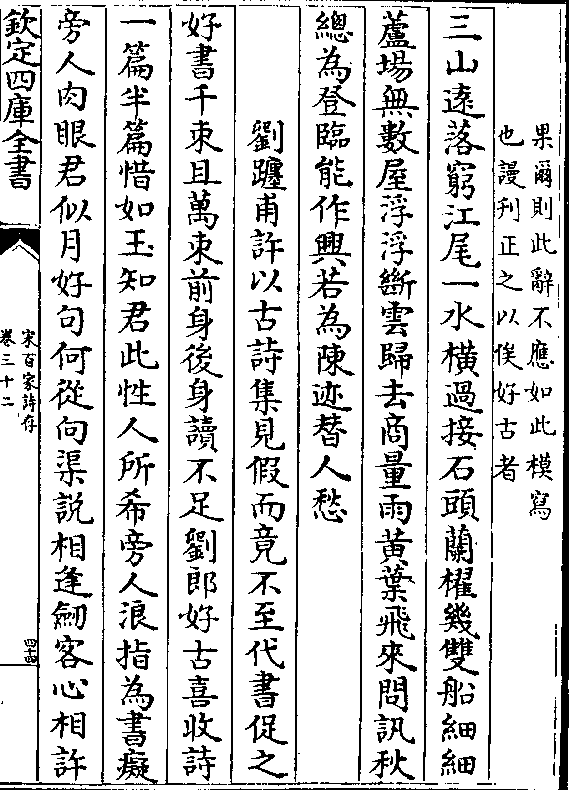 果爾則此辭不應如此模寫
也謾刋正之以俟好古者
三山遠落窮江尾一水橫過接石頭蘭櫂幾雙船細細
蘆場無數屋浮浮斷雲歸去商量雨黃葉飛來問訊秋
總為登臨能作興若為陳迹替人愁
劉躔甫許以古詩集見假而竟不至代書促之
好書千束且萬束前身後身讀不足劉郎好古喜收詩
一篇半篇惜如玉知君此性人所希旁人浪指為書癡
旁人肉眼君似月好句何從向渠説相逢劒客心相許
欽定四庫全書
宋百家詩存
卷三十二
四十四